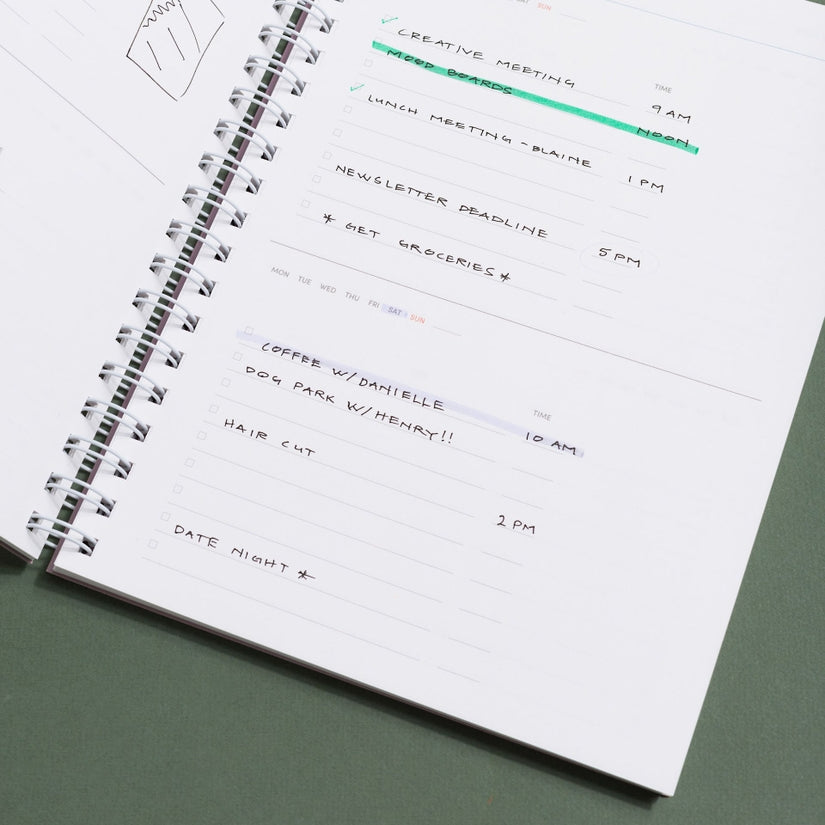 SAT SUN
TIME
CREATIVE MEETING 9 AM
MOOD BOARDS NOON
LUNCH MEETING - BLAINE 1 PM
NEWSLETTER DEADLINE 5 PM
* GET GROCERIES *
MON TUE WED THU FRI SAT SUN
TIME
COFFEE W/ DANIELLE 10 AM
DOG PARK W/ HENRY!!
HAIR CUT 2 PM
DATE NIGHT *